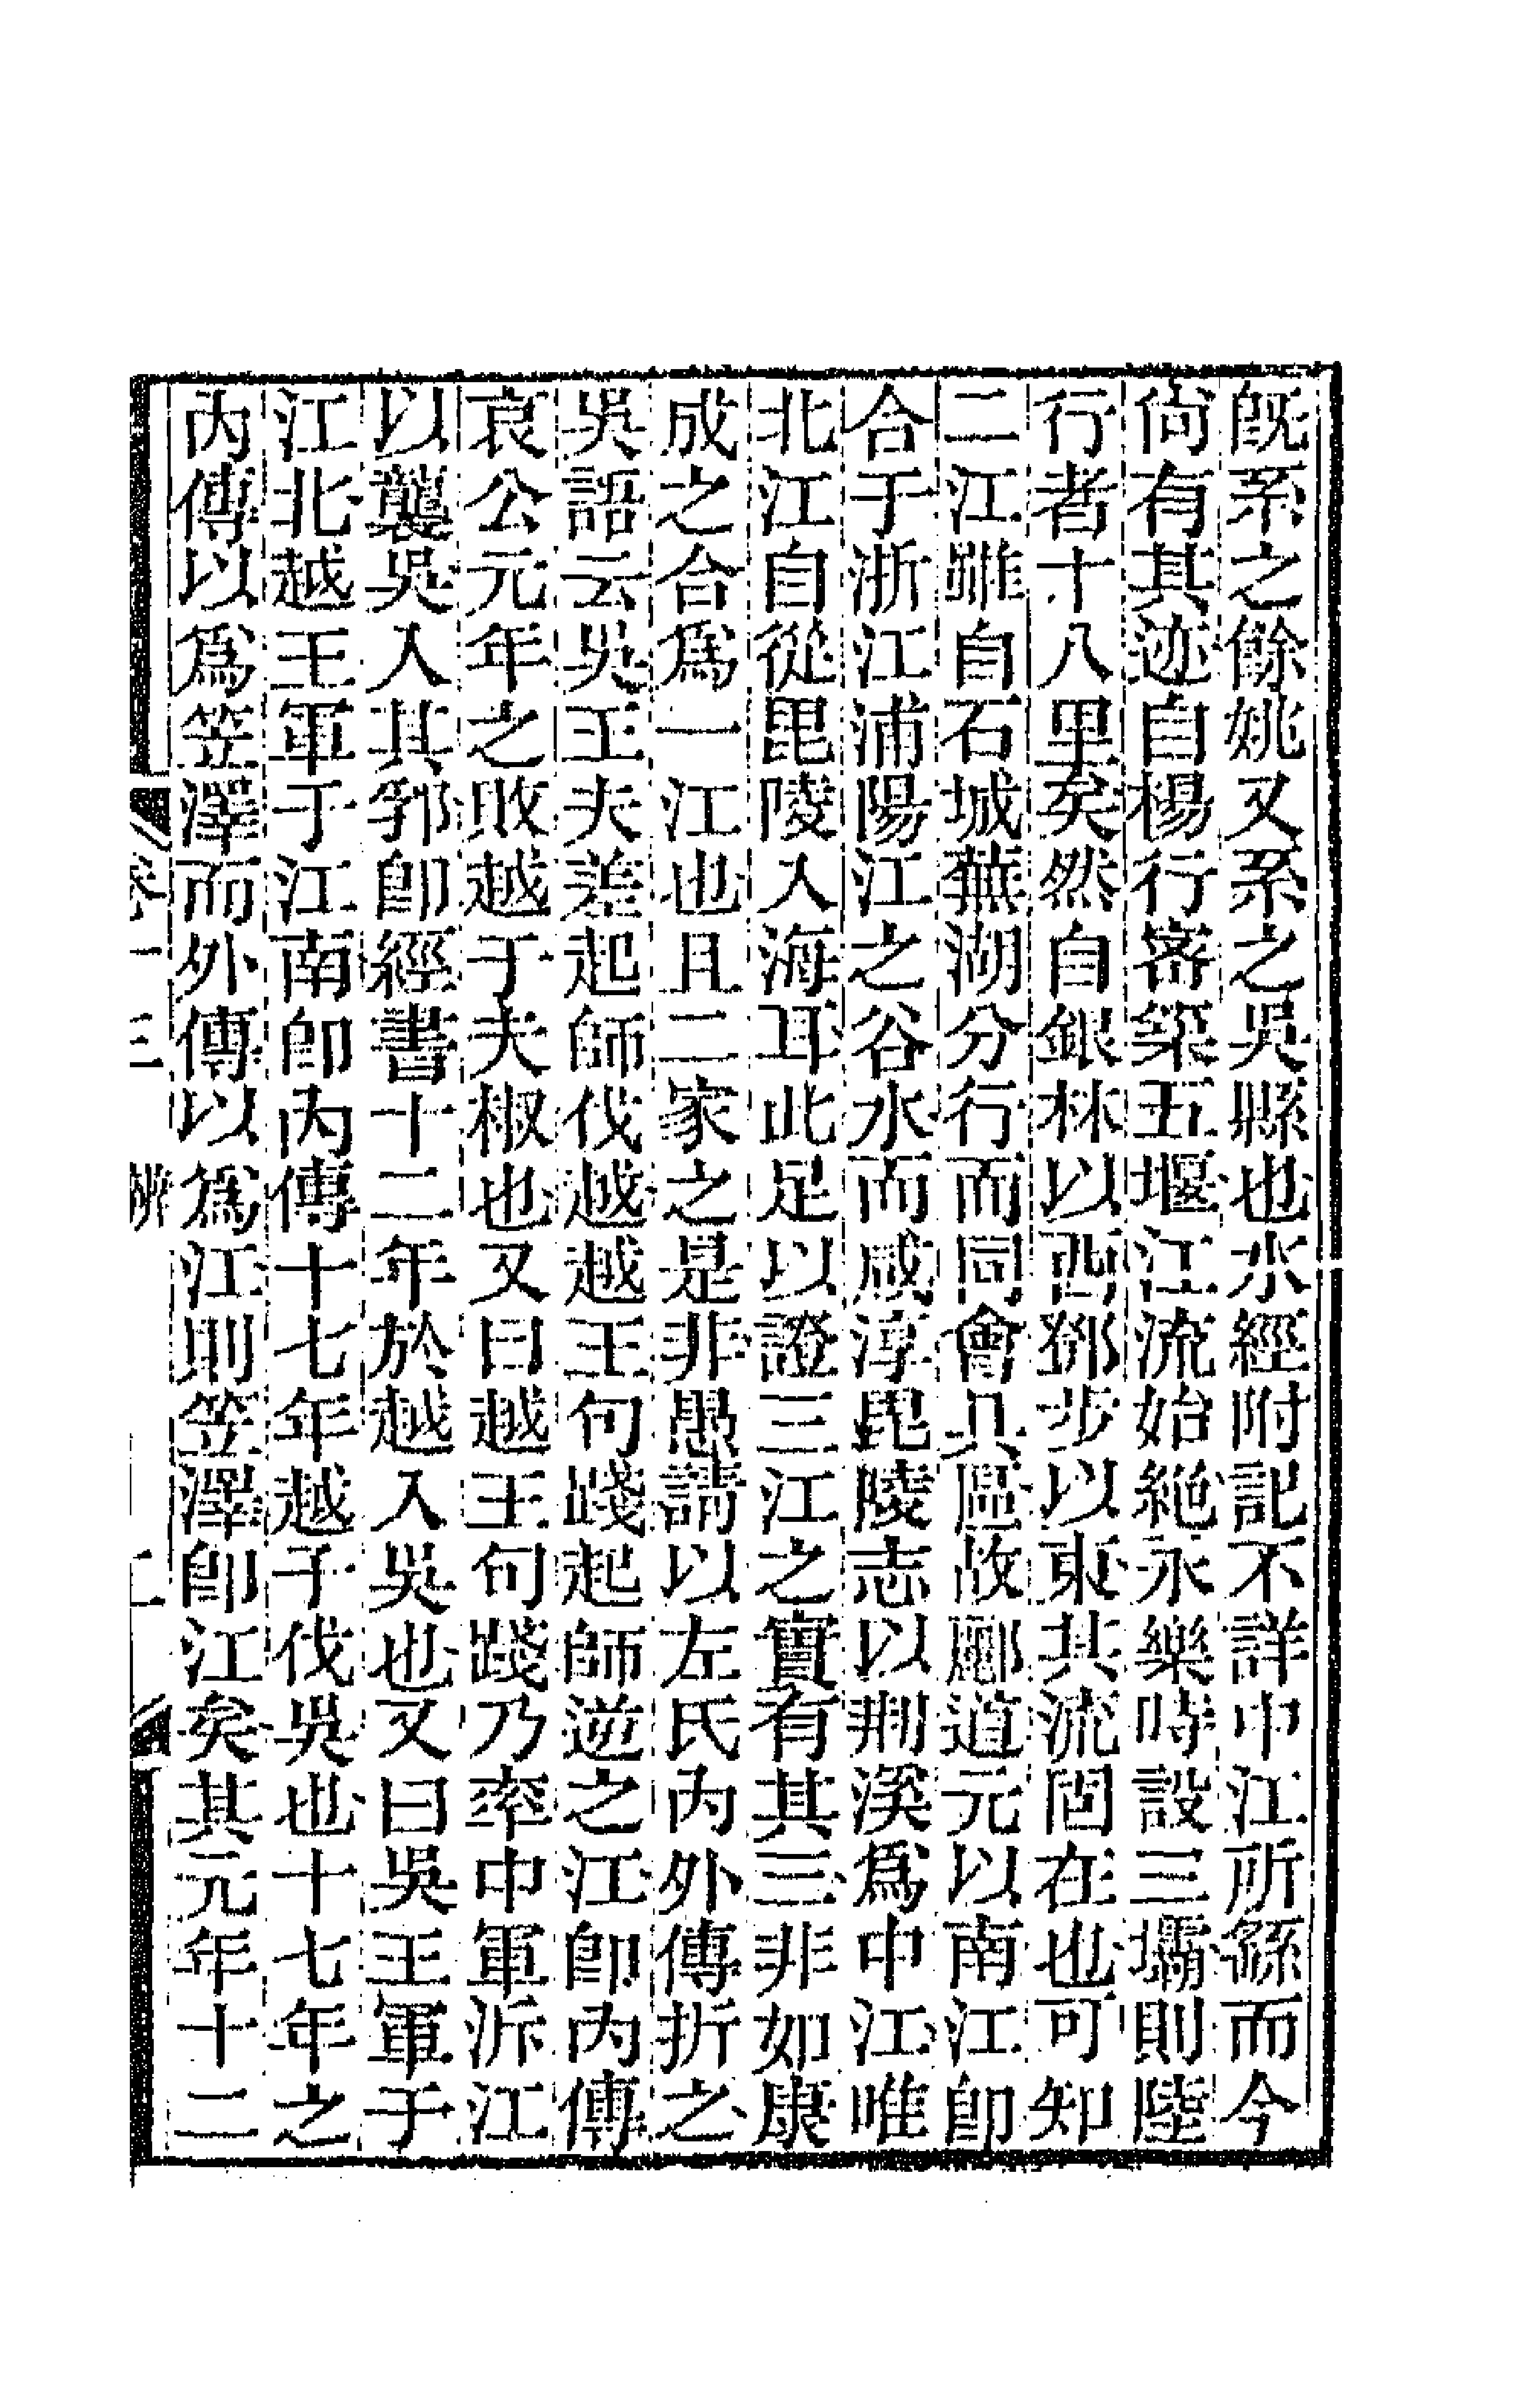 旣系之餘姚又系之吳縣也水經附記不詳中江所繇而今
尙有其迹自楊行密築五堰江流始絕永樂時設三壩則陸
行者十八里矣然自銀林以西鄧步以東其流固在也可知
二江雖自石城蕪湖分行而同會具區故酈道元以南江卽
合于浙江浦陽江之谷水而咸淳毘陵志以荆溪爲中江唯
北江自從毘陵入海耳此足以證三江之實有其三非如康
成之合爲一江也且二家之是非愚請以左氏內外傳折之
吳語云吳王夫差起師伐越越王句踐起師逆之江卽內傳
哀公元年之敗越于夫椒也又曰越王句踐乃率中軍泝江
以襲吳入其郛卽經書十二年於越入吳也又曰吳王軍于
江北越王軍于江南卽內傳十七年越子伐吳也十七年之
內傳以爲笠澤而外傳以爲江則笠澤卽江矣其元年十二